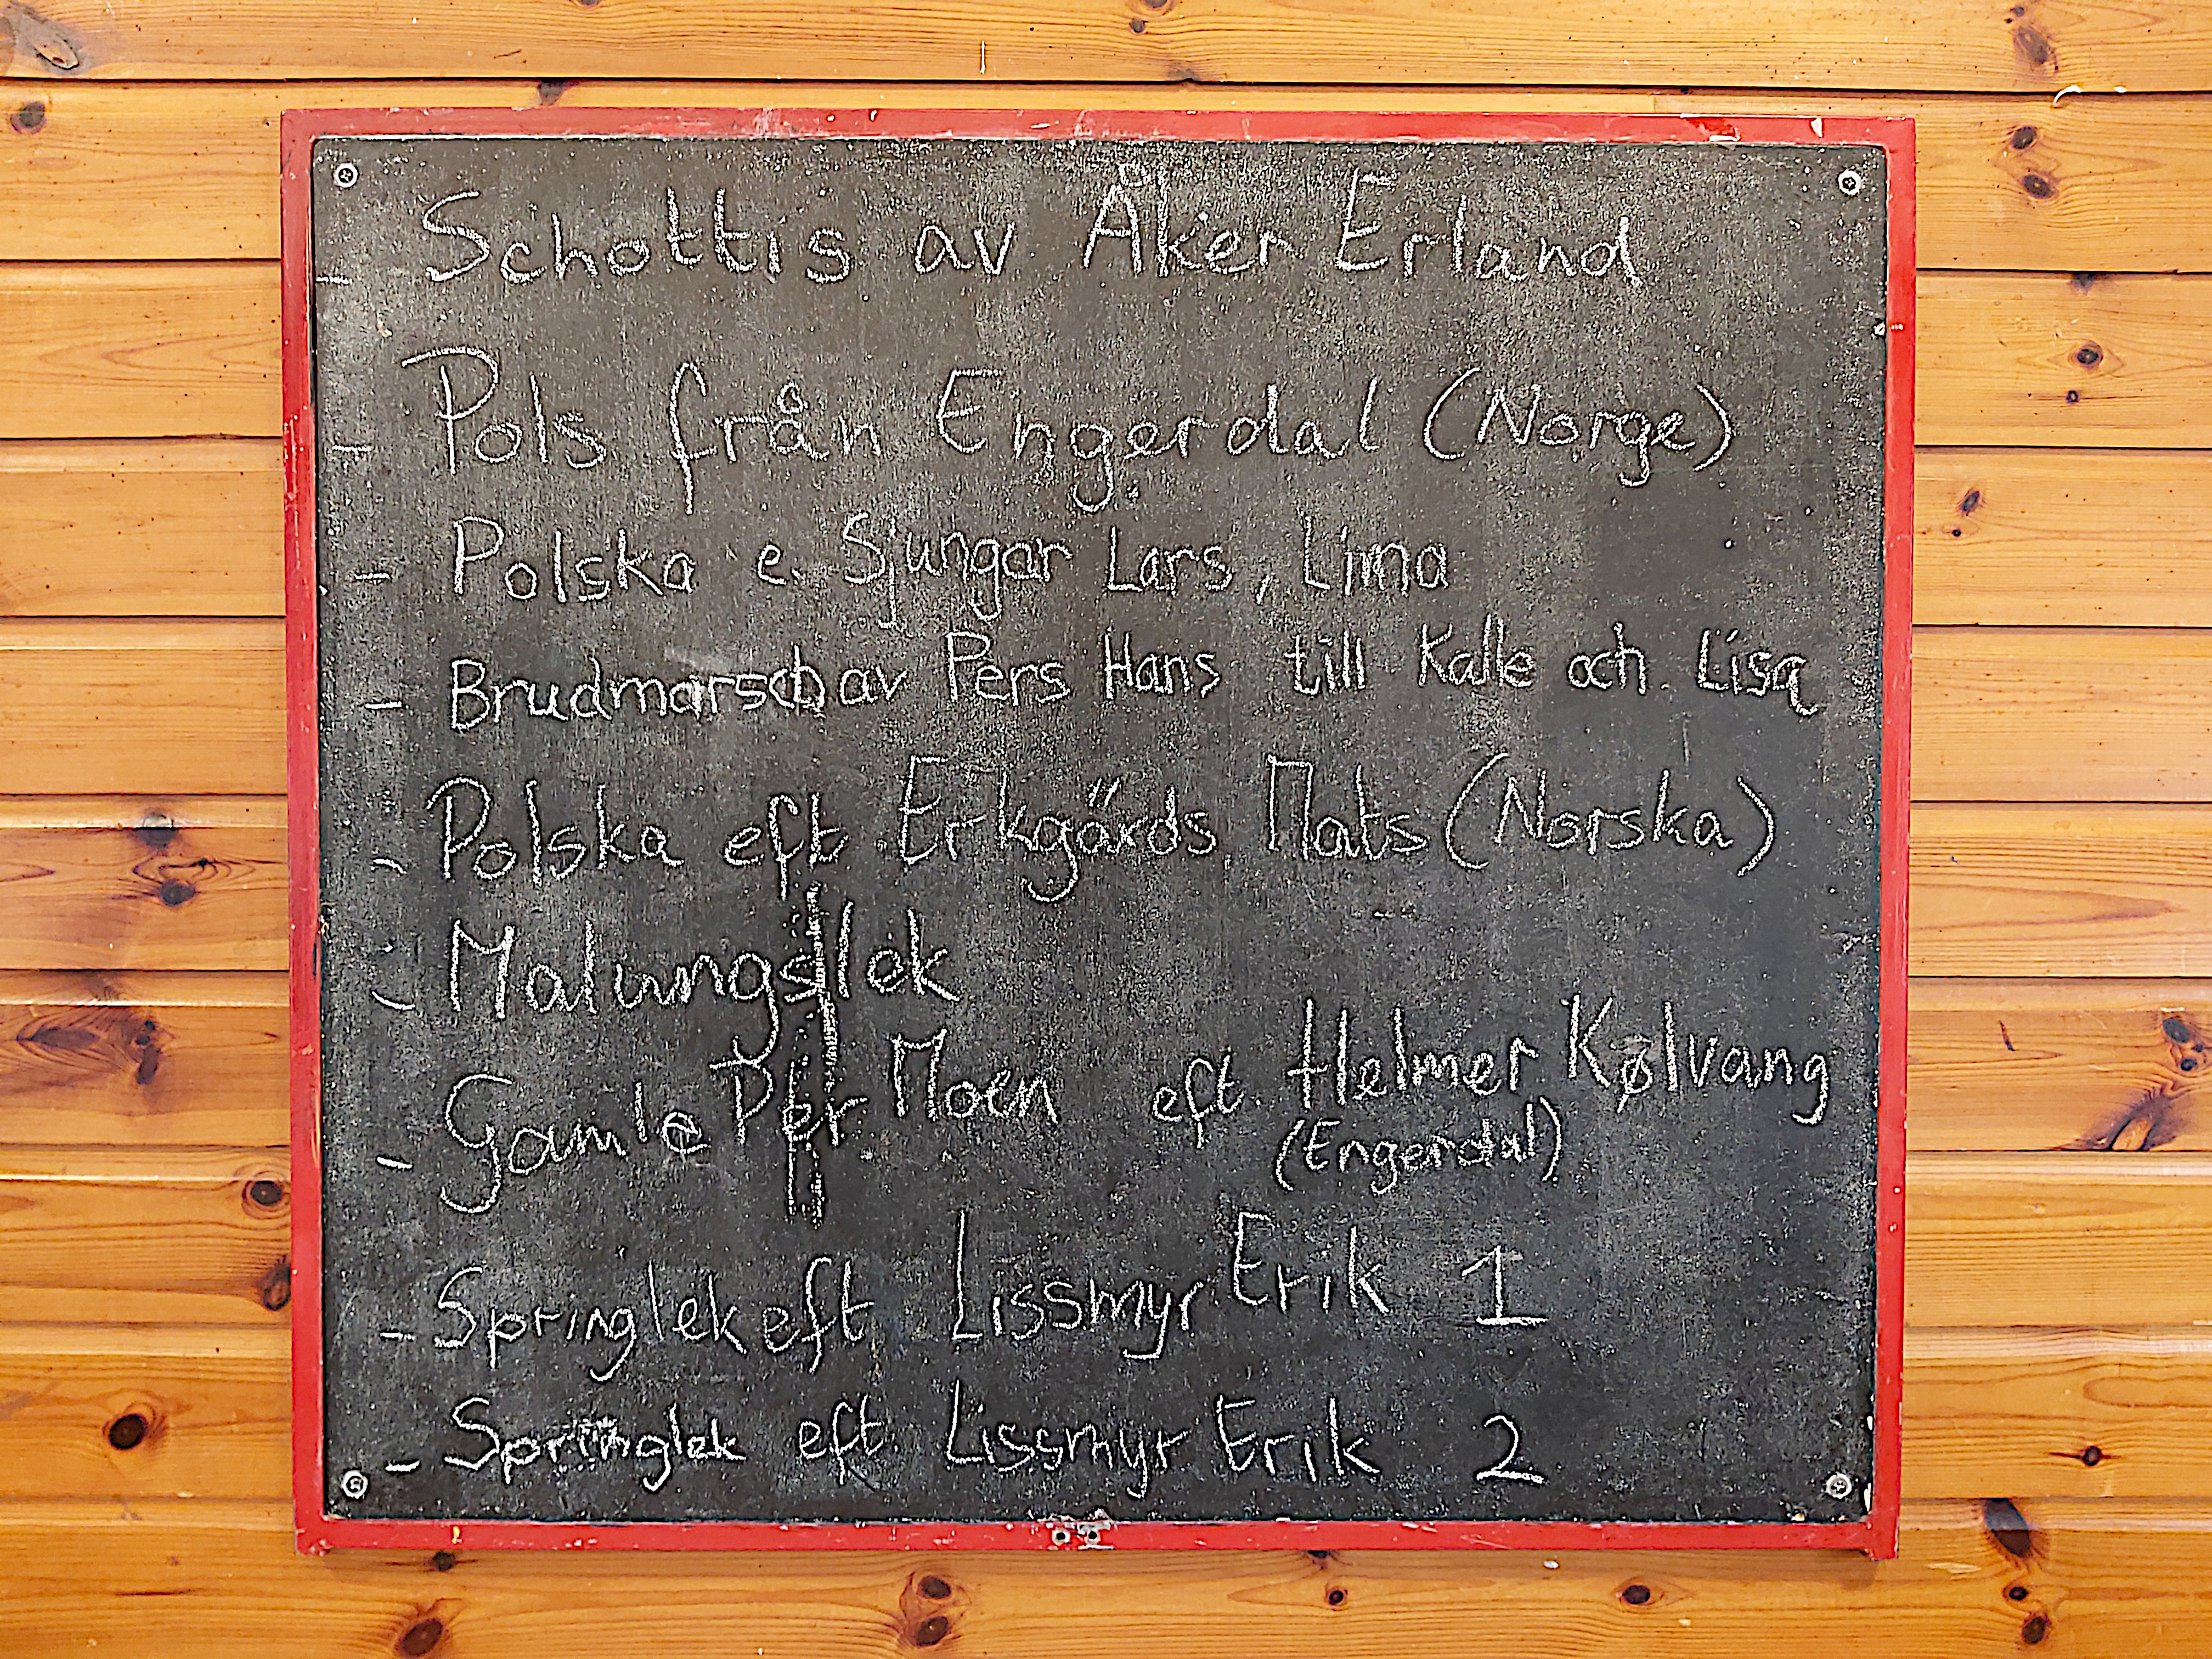 - Schottis av Åker Erland
- Pols från Engerdal (Norge)
- Polska e. Sjungar Lars, Lima
- Brudmarsch av Pers Hans till Kalle och Lisa
- Polska eft Erkgärds Mats (Norska)
- Malungslek
- Gamle Per Moen eft Helmer Kølvang
(Engerdal)
- Springlek eft Lissmyr Erik 1
- Springlek eft Lissmyr Erik 2